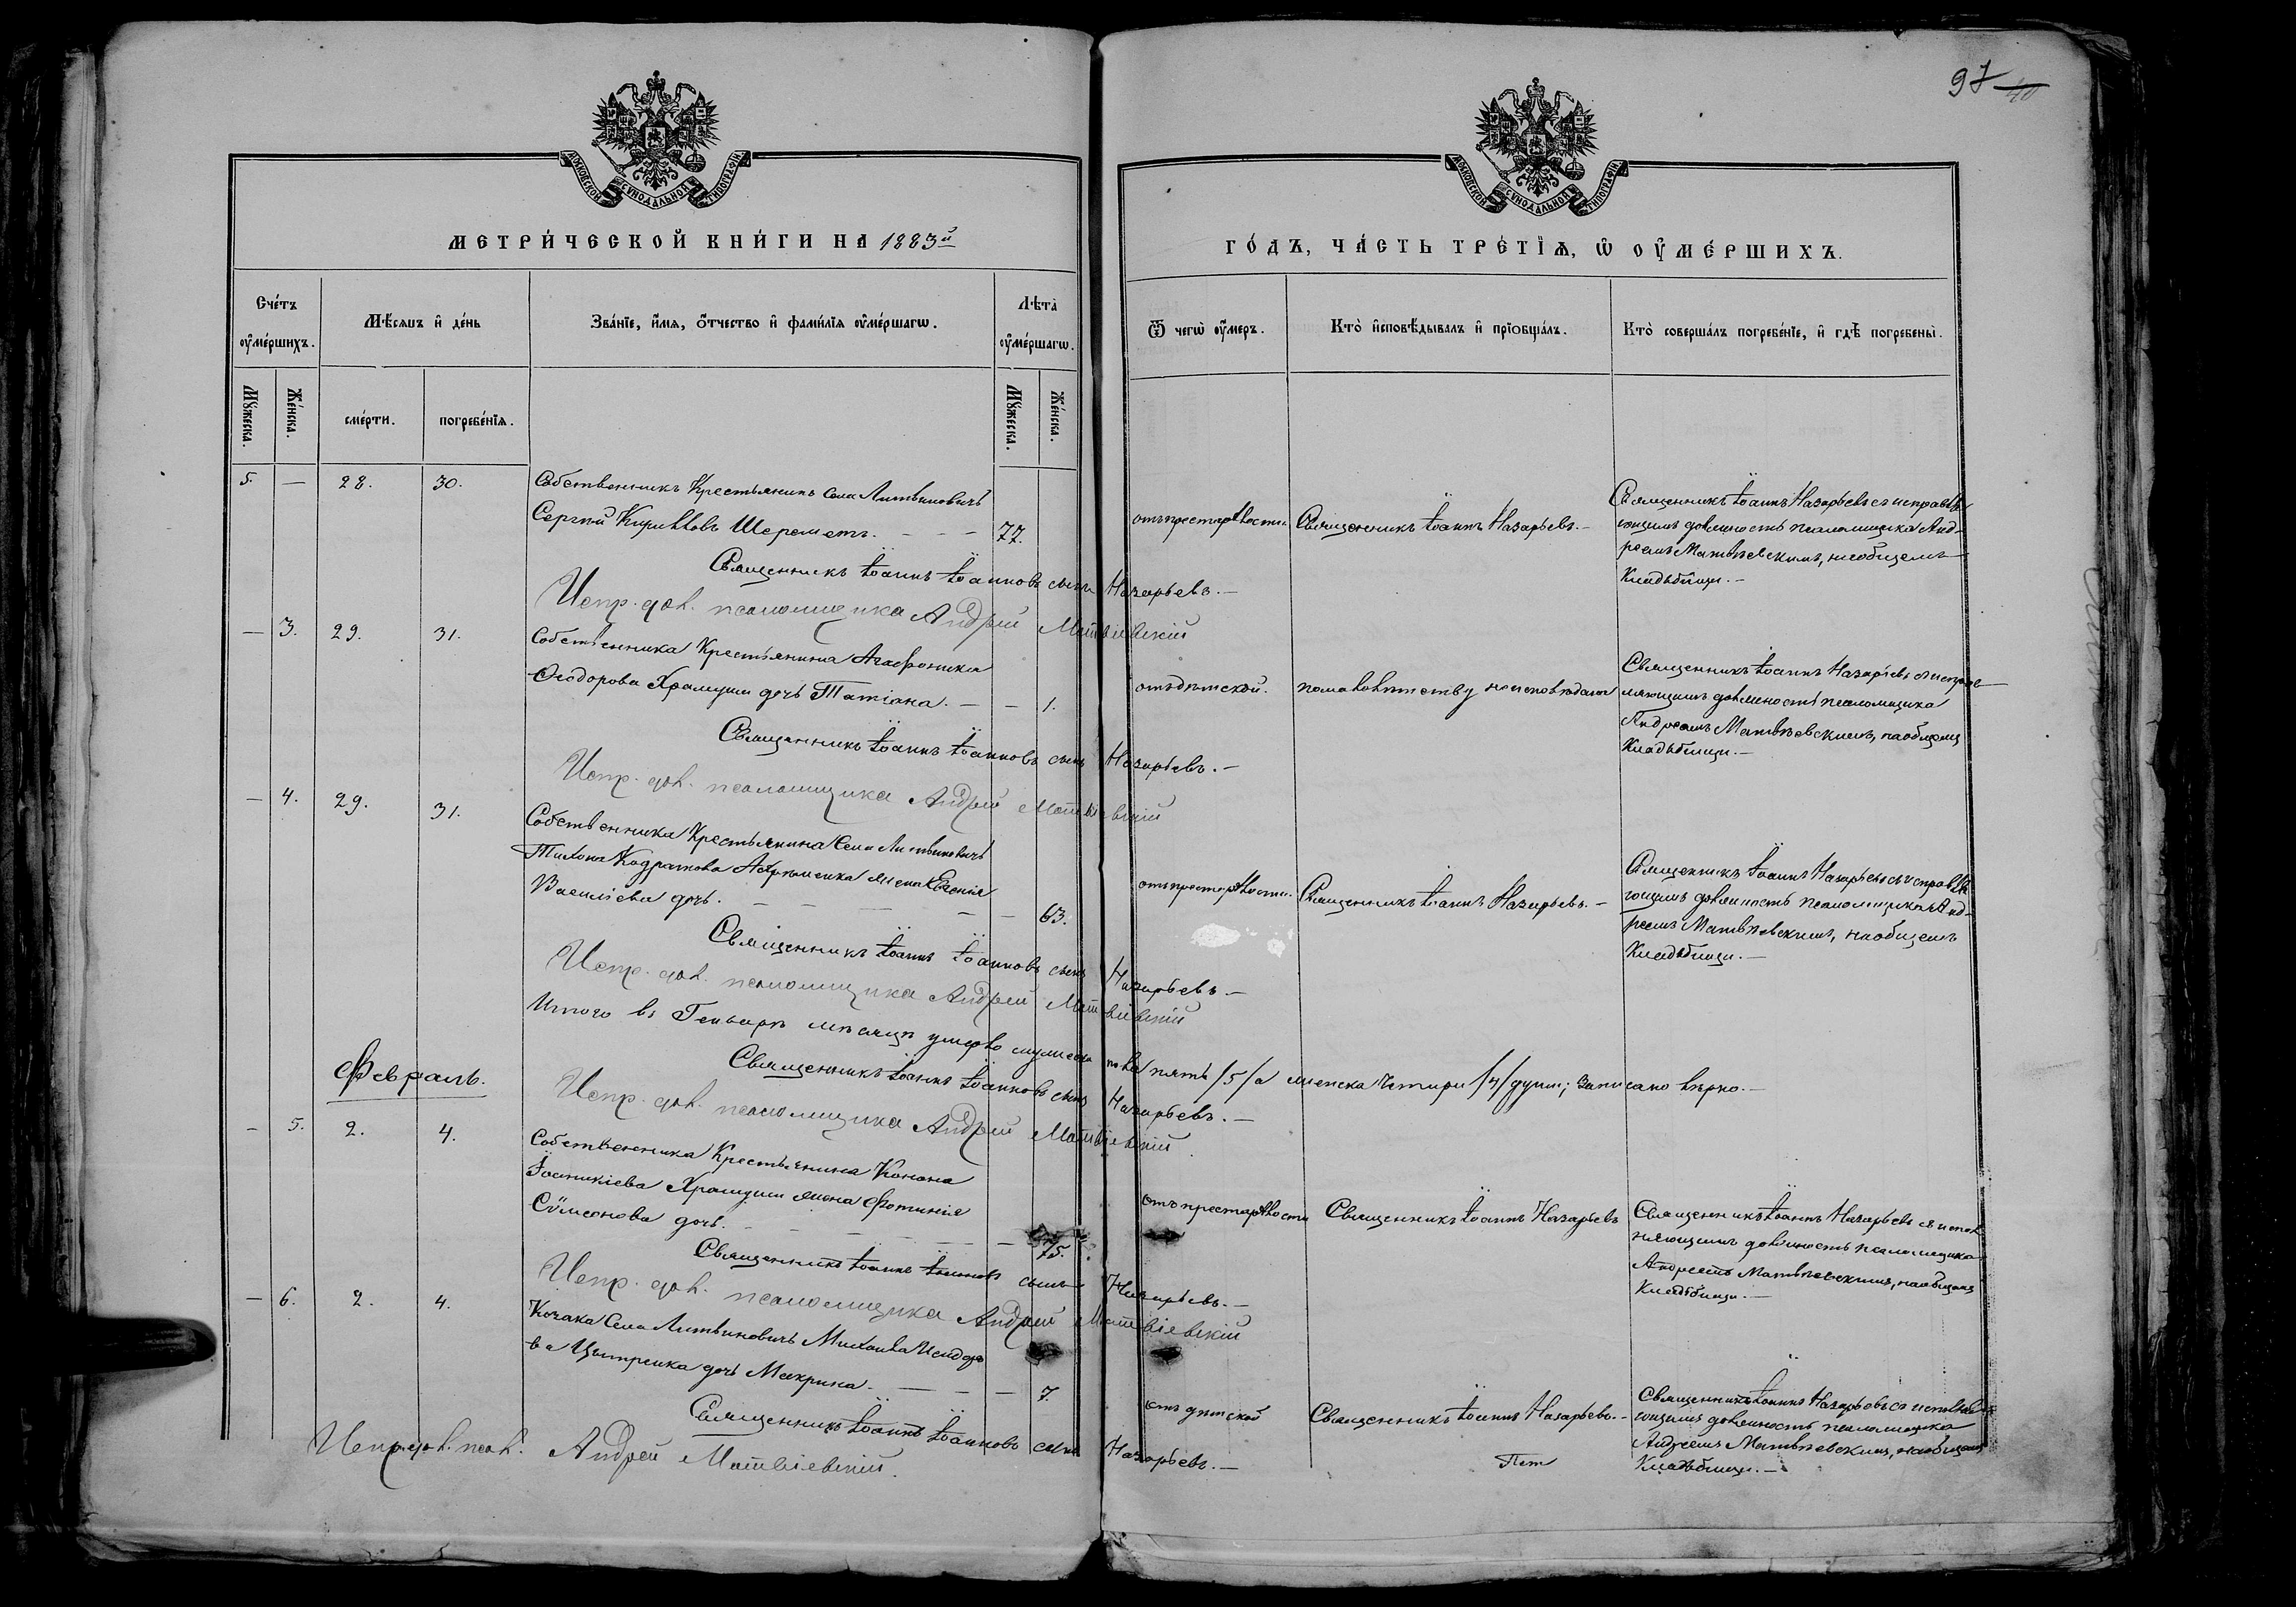 97 40
МОСКОВСКОЙ СѴНОДАЛЬНОЙ ТИПОГРАФІИ
МОСКОВСКОЙ СѴНОДАЛЬНОЙ ТИПОГРАФІИ
МЕТРИ́ЧЕСКОЙ КНИ́ГИ НА 1883й
ГО́ДЪ, ЧА́СТЬ ТРЕ́ТІѦ, Ѡ ОУ҆МЕ́РШИХЪ.
Сче́тъ оу҆ме́ршихъ.
Мѣ́сѧцъ и҆ де́нь
Зва́нїе, и҆́мѧ, о҆́тчество и҆ фами́лїѧ оу҆ме́ршагѡ.
Лѣ́та оу҆ме́ршагѡ.
Ѿ чегѡ̀ оу҆́меръ.
Кто̀ и҆сповѣ́дывалъ и҆ прїобща́лъ.
Кто̀ соверша́лъ погребе́нїе, и҆ гдѣ̀ погребены̀.
Мꙋ́жеска.
Же́нска.
сме́рти.
погребе́нїѧ.
Мꙋ́жеска.
Же́нска.
5. — 28. 30. Собственникъ Крестьянинъ села Литвиновичъ
Сергѣй Кирилловъ Шереметъ. - - - 77.
отъ престарѣлости
Священникъ Іоаннъ Назарьевъ. -
Священникъ Іоаннъ Назарьевъ съ исправля
ющимъ должность псаломщика Анд-
реемъ Матвѣевскимъ, на общемъ
Кладбищи. —
Священникъ Іоаннъ Іоанновъ сынъ Назарьевъ. —
Испр. дол. псаломщика Андрей Матвіевскій
— 3. 29. 31. Собственника Крестьянина Агафоника
Ѳеодорова Храмуши дочь Татіана. — — 1.
отъ дѣтской.
по маловѣтству не исповѣдана
Священникъ Іоаннъ Назарьевъ съ исправ
ляющимъ должность псаломщика
Андреемъ Матвѣевскимъ, на общемъ
Кладбищи. —
Священникъ Іоаннъ Іоанновъ сынъ Назарьевъ. —
Испр. дол. псаломщика Андрей Матвіевскій
— 4. 29. 31. Собственника Крестьянина Села Литвиновичъ
Тихона Кодратова жена Евгенія
Василіева дочь. — — — — — 63.
отъ престарѣлости.
Священникъ Іоаннъ Назарьевъ. -
Священникъ Іоаннъ Назарьевъ съ исправля
ющимъ должность псаломщика Анд-
реемъ Матвѣевскимъ, на общемъ
Кладбищи. —
Священникъ Іоаннъ Іоанновъ сынъ Назарьевъ. —
Испр. дол. псаломщика Андрей Матвіевскій
Итого въ Генварѣ мѣсяцѣ умерло мужеска пола пять /5/ а женска четыри /4/ души; записано вѣрно. —
Священникъ Іоаннъ Іоанновъ сынъ Назарьевъ. —
Испр. дол. псаломщика Андрей Матвіевскій
Февраль.
- 5. 2. 4. Собственника Крестьянина Конона
Іоаникіева Храмуши жена Фотинія
Сѵмеонова дочь. - - - - - — 75.
отъ престарѣлости
Священникъ Іоаннъ Назарьевъ
Священникъ Іоаннъ Назарьевъ съ испол
няющимъ должность псаломщика
Андреемъ Матвѣевскимъ, на общемъ
Кладбищи. —
Священникъ Іоаннъ Іоанновъ сынъ Назарьевъ. —
Испр. дол. псаломщика Андрей Матвіевскій
— 6. 2. 4. Козака Села Литвиновичъ Михаила Исидоро
ва дочь Макрина. — — — 7.
отъ дѣтской
Священникъ Іоаннъ Назарьевъ. -
Священникъ Іоаннъ Назарьевъ съ исправля
ющимъ должность псаломщика
Андреемъ Матвѣевскимъ, на общемъ
Кладбищи. —
Священникъ Іоаннъ Іоанновъ сынъ Назарьевъ. —
Испр. дол. псал. Андрей Матвіевскій.